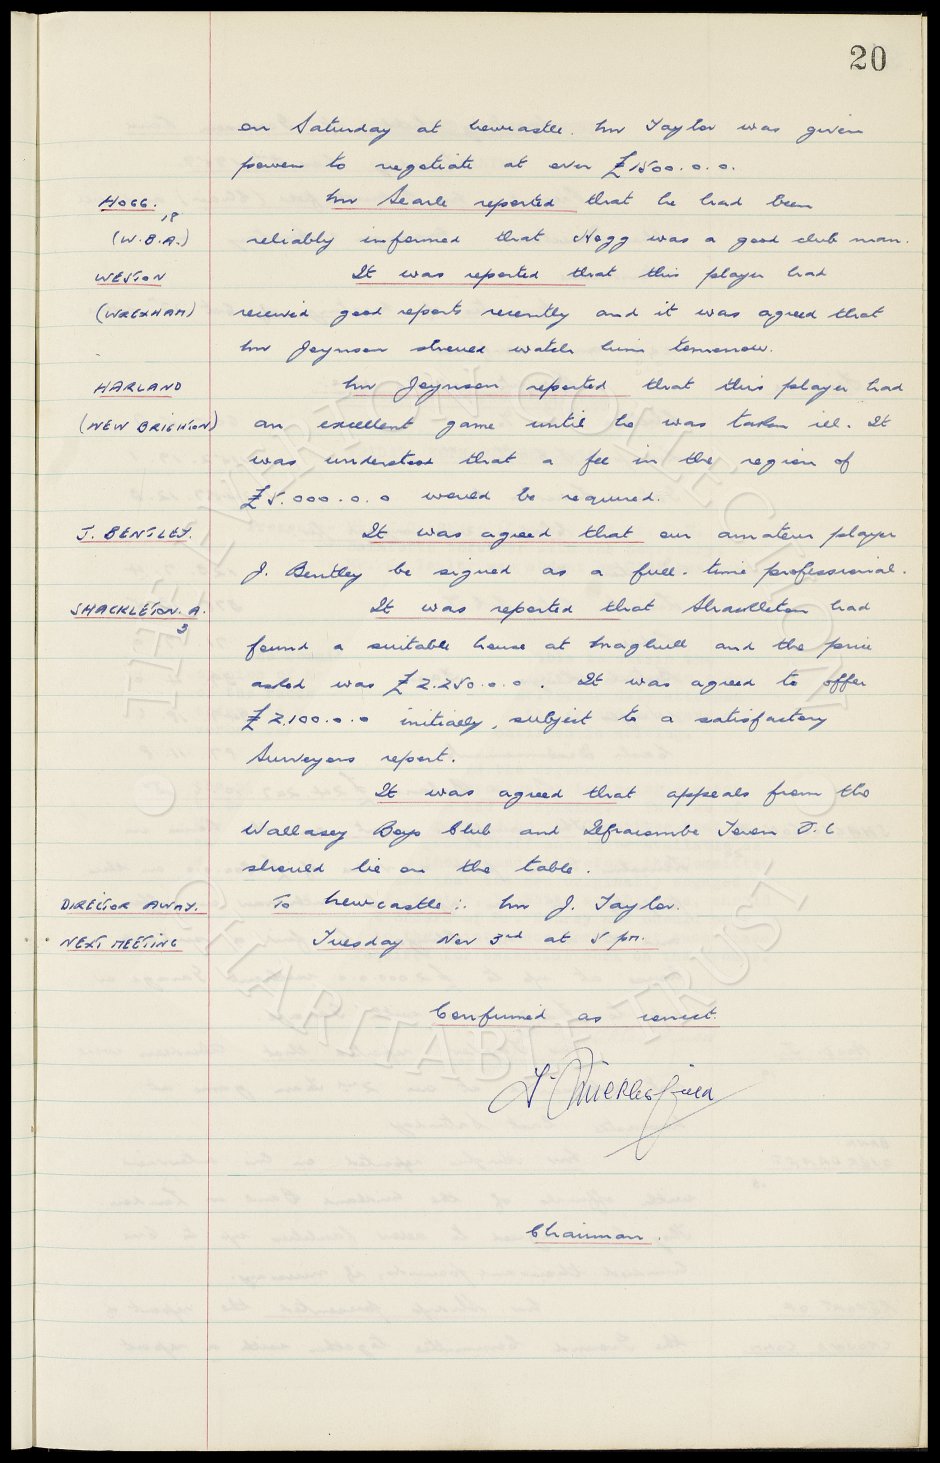 20
on Saturday at Newcastle. Mr Taylor was given
power to negotiate at over £1500.0.0.
HOGG. Mr Searle reported that he had been
18
(W.B.A.) reliably informed that Hogg was a good club man.
WESTON It was reported that this player had
(WREXHAM) received good reports recently and it was agreed that
Mr Joynson should watch him tomorrow.
HARLAND Mr Joynson reported that this player had
(NEW BRIGHTON) an excellent game until he was taken ill. It
was understood that a fee in the region of
£5.000.0.0 would be required.
J. BENTLEY. It was agreed that our amateur player
J. Bentley be signed as a full-time professional.
SHACKLETON. A. It was reported that Shackleton had
3
found a suitable house at Maghull and the price
asked was £2.250.0.0. It was agreed to offer
£2.100.0.0 initially, subject to a satisfactory
Surveyors report.
It was agreed that appeals from the
Wallasey Boys Club and Ilfracombe Town F.C
should lie on the table.
DIRECTOR AWAY. To Newcastle:. Mr J. Taylor.
NEXT MEETING Tuesday Nov 3rd at 5 pm.
Confirmed as correct.
Chairman.
THE EVERTON COLLECTION
CHARITABLE TRUST